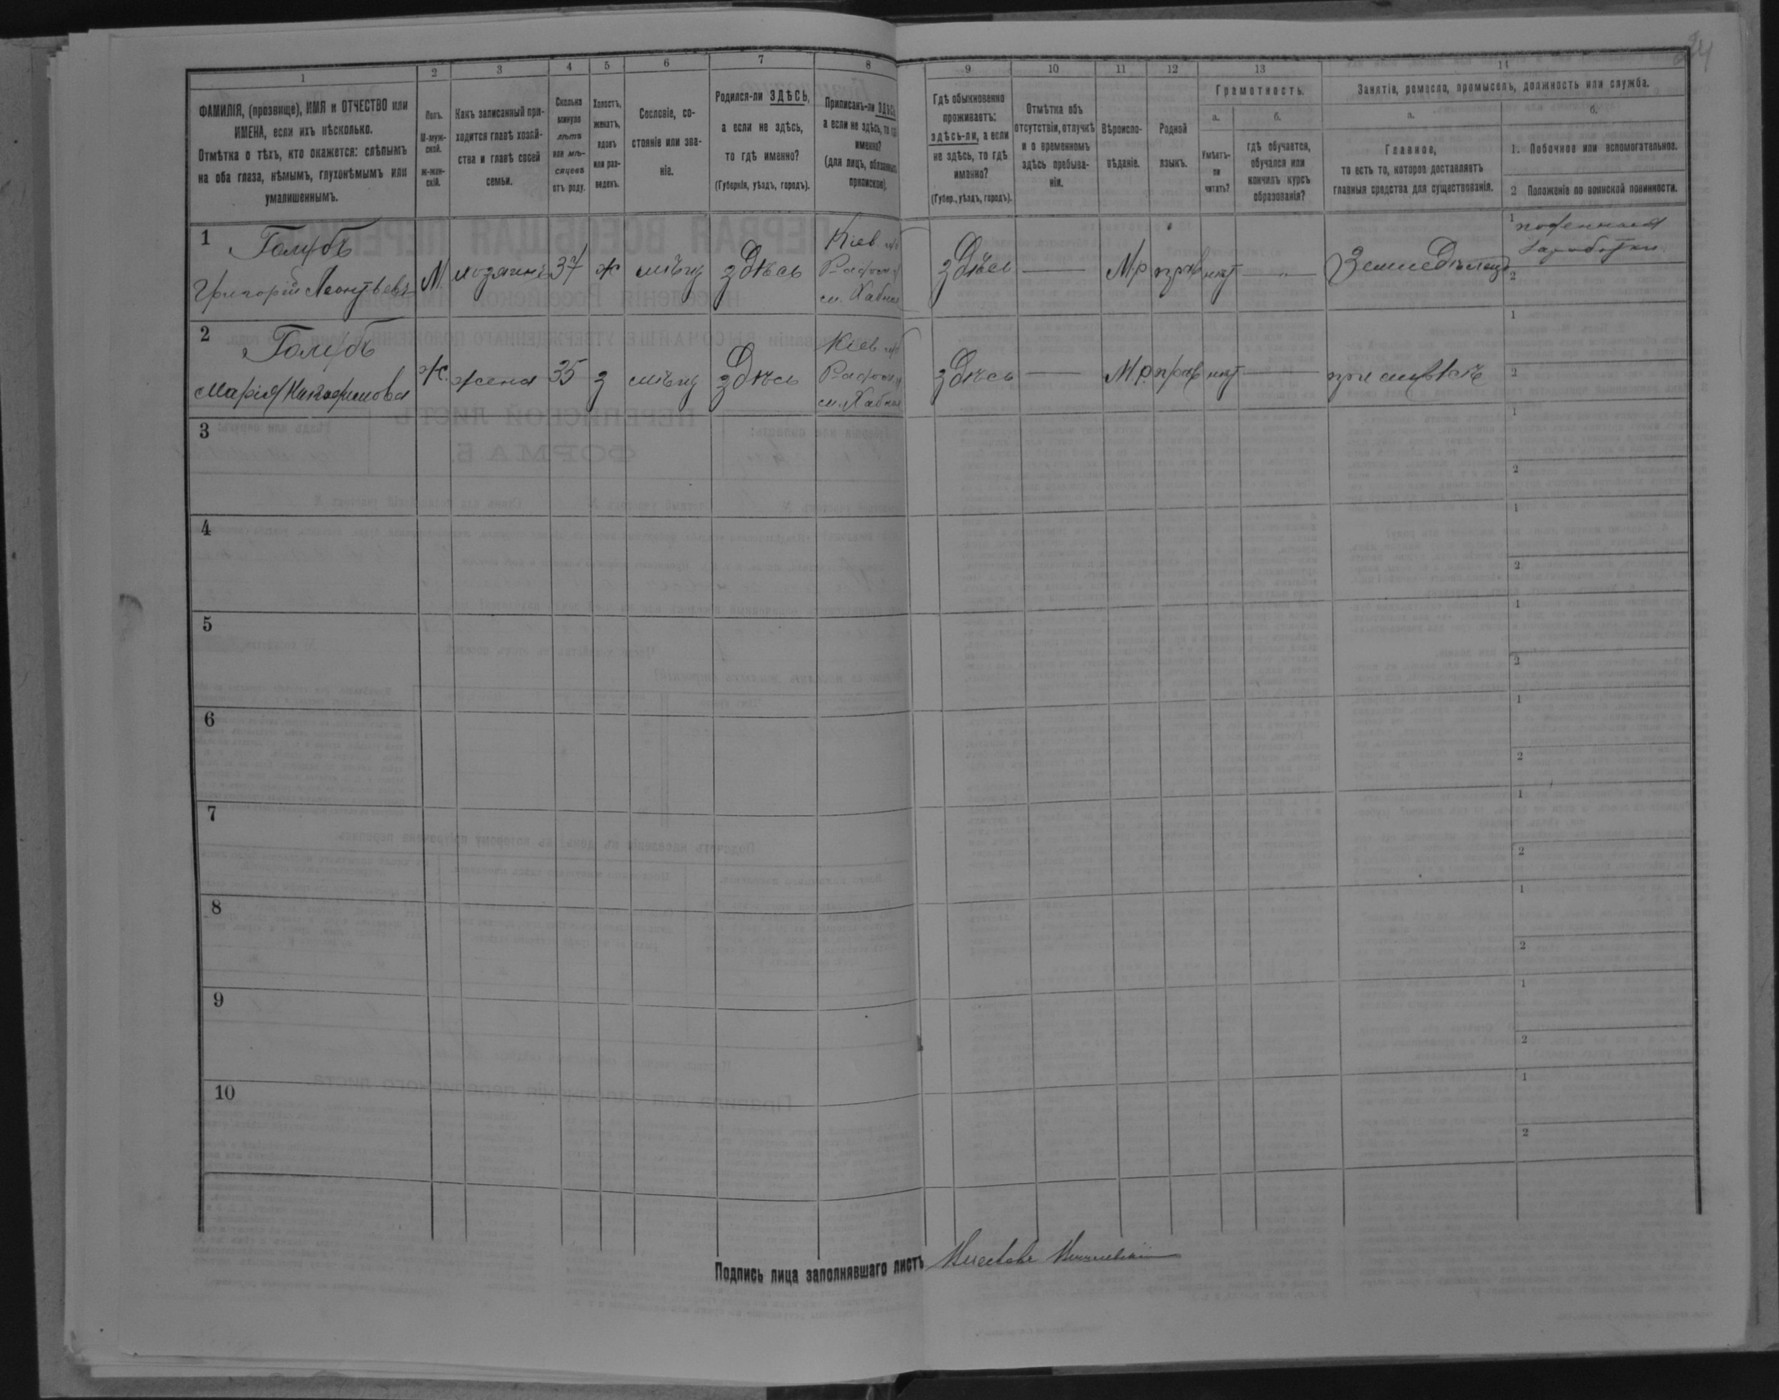 24
1 2 3 4 5 6 7 8 9 10 11 12 13 14
ФАМИЛІЯ, (прозвище), ИМЯ и ОТЧЕСТВО или
ИМЕНА, если ихъ нѣсколько.
Отмѣтка о тѣхъ, кто окажется: слѣпымъ
на оба глаза, нѣмымъ, глухонѣмымъ или
умалишеннымъ.
Полъ.
М-муж-
ской.
Ж-жен-
скій.
Какъ записанный при-
ходится главѣ хозяй-
ства и главѣ своей
семьи.
Сколько
минуло
лѣтъ
или мѣ-
сяцевъ
отъ роду.
Холостъ,
женатъ,
вдовъ
или раз-
веденъ.
Сословіе, со-
стояніе или зва-
ніе.
Родился-ли ЗДѢСЬ,
а если не здѣсь,
то гдѣ именно?
(Губернія, уѣздъ, городъ).
Приписанъ-ли ЗДѢСЬ,
а если не здѣсь, то гдѣ
именно?
(для лицъ, обязанныхъ
припискою).
Гдѣ обыкновенно
проживаетъ:
здѣсь-ли, а если
не здѣсь, то гдѣ
именно?
(Губер., уѣздъ, городъ).
Отмѣтка объ
отсутствіи, отлучкѣ
и о временномъ
здѣсь пребыва-
ніи.
Вѣроиспо-
вѣданіе.
Родной
языкъ.
Грамотность.
а.
Умѣетъ-
ли
читать?
б.
гдѣ обучается,
обучался или
кончилъ курсъ
образованія?
Занятіе, ремесло, промыселъ, должность или служба.
а.
Главное,
то есть то, которое доставляетъ
главныя средства для существованія.
б.
1. Побочное или вспомогательное.
2 Положеніе по воинской повинности.
1 Голубъ
Григорій Леонтьевъ М хозяинъ 37 ж мѣщ здѣсь Кіев здѣсь — прав нѣт — Земледѣлецъ
1 поденныя
заработки
2
2 Голубъ
Марія Ж жена 35 з мѣщ здѣсь Кіев здѣсь — прав нѣт — при мужѣ
1
2
3
1
2
4
1
2
5
1
2
6
1
2
7
1
2
8
1
2
9
1
2
10
1
2
Подпись лица заполнявшаго листъ